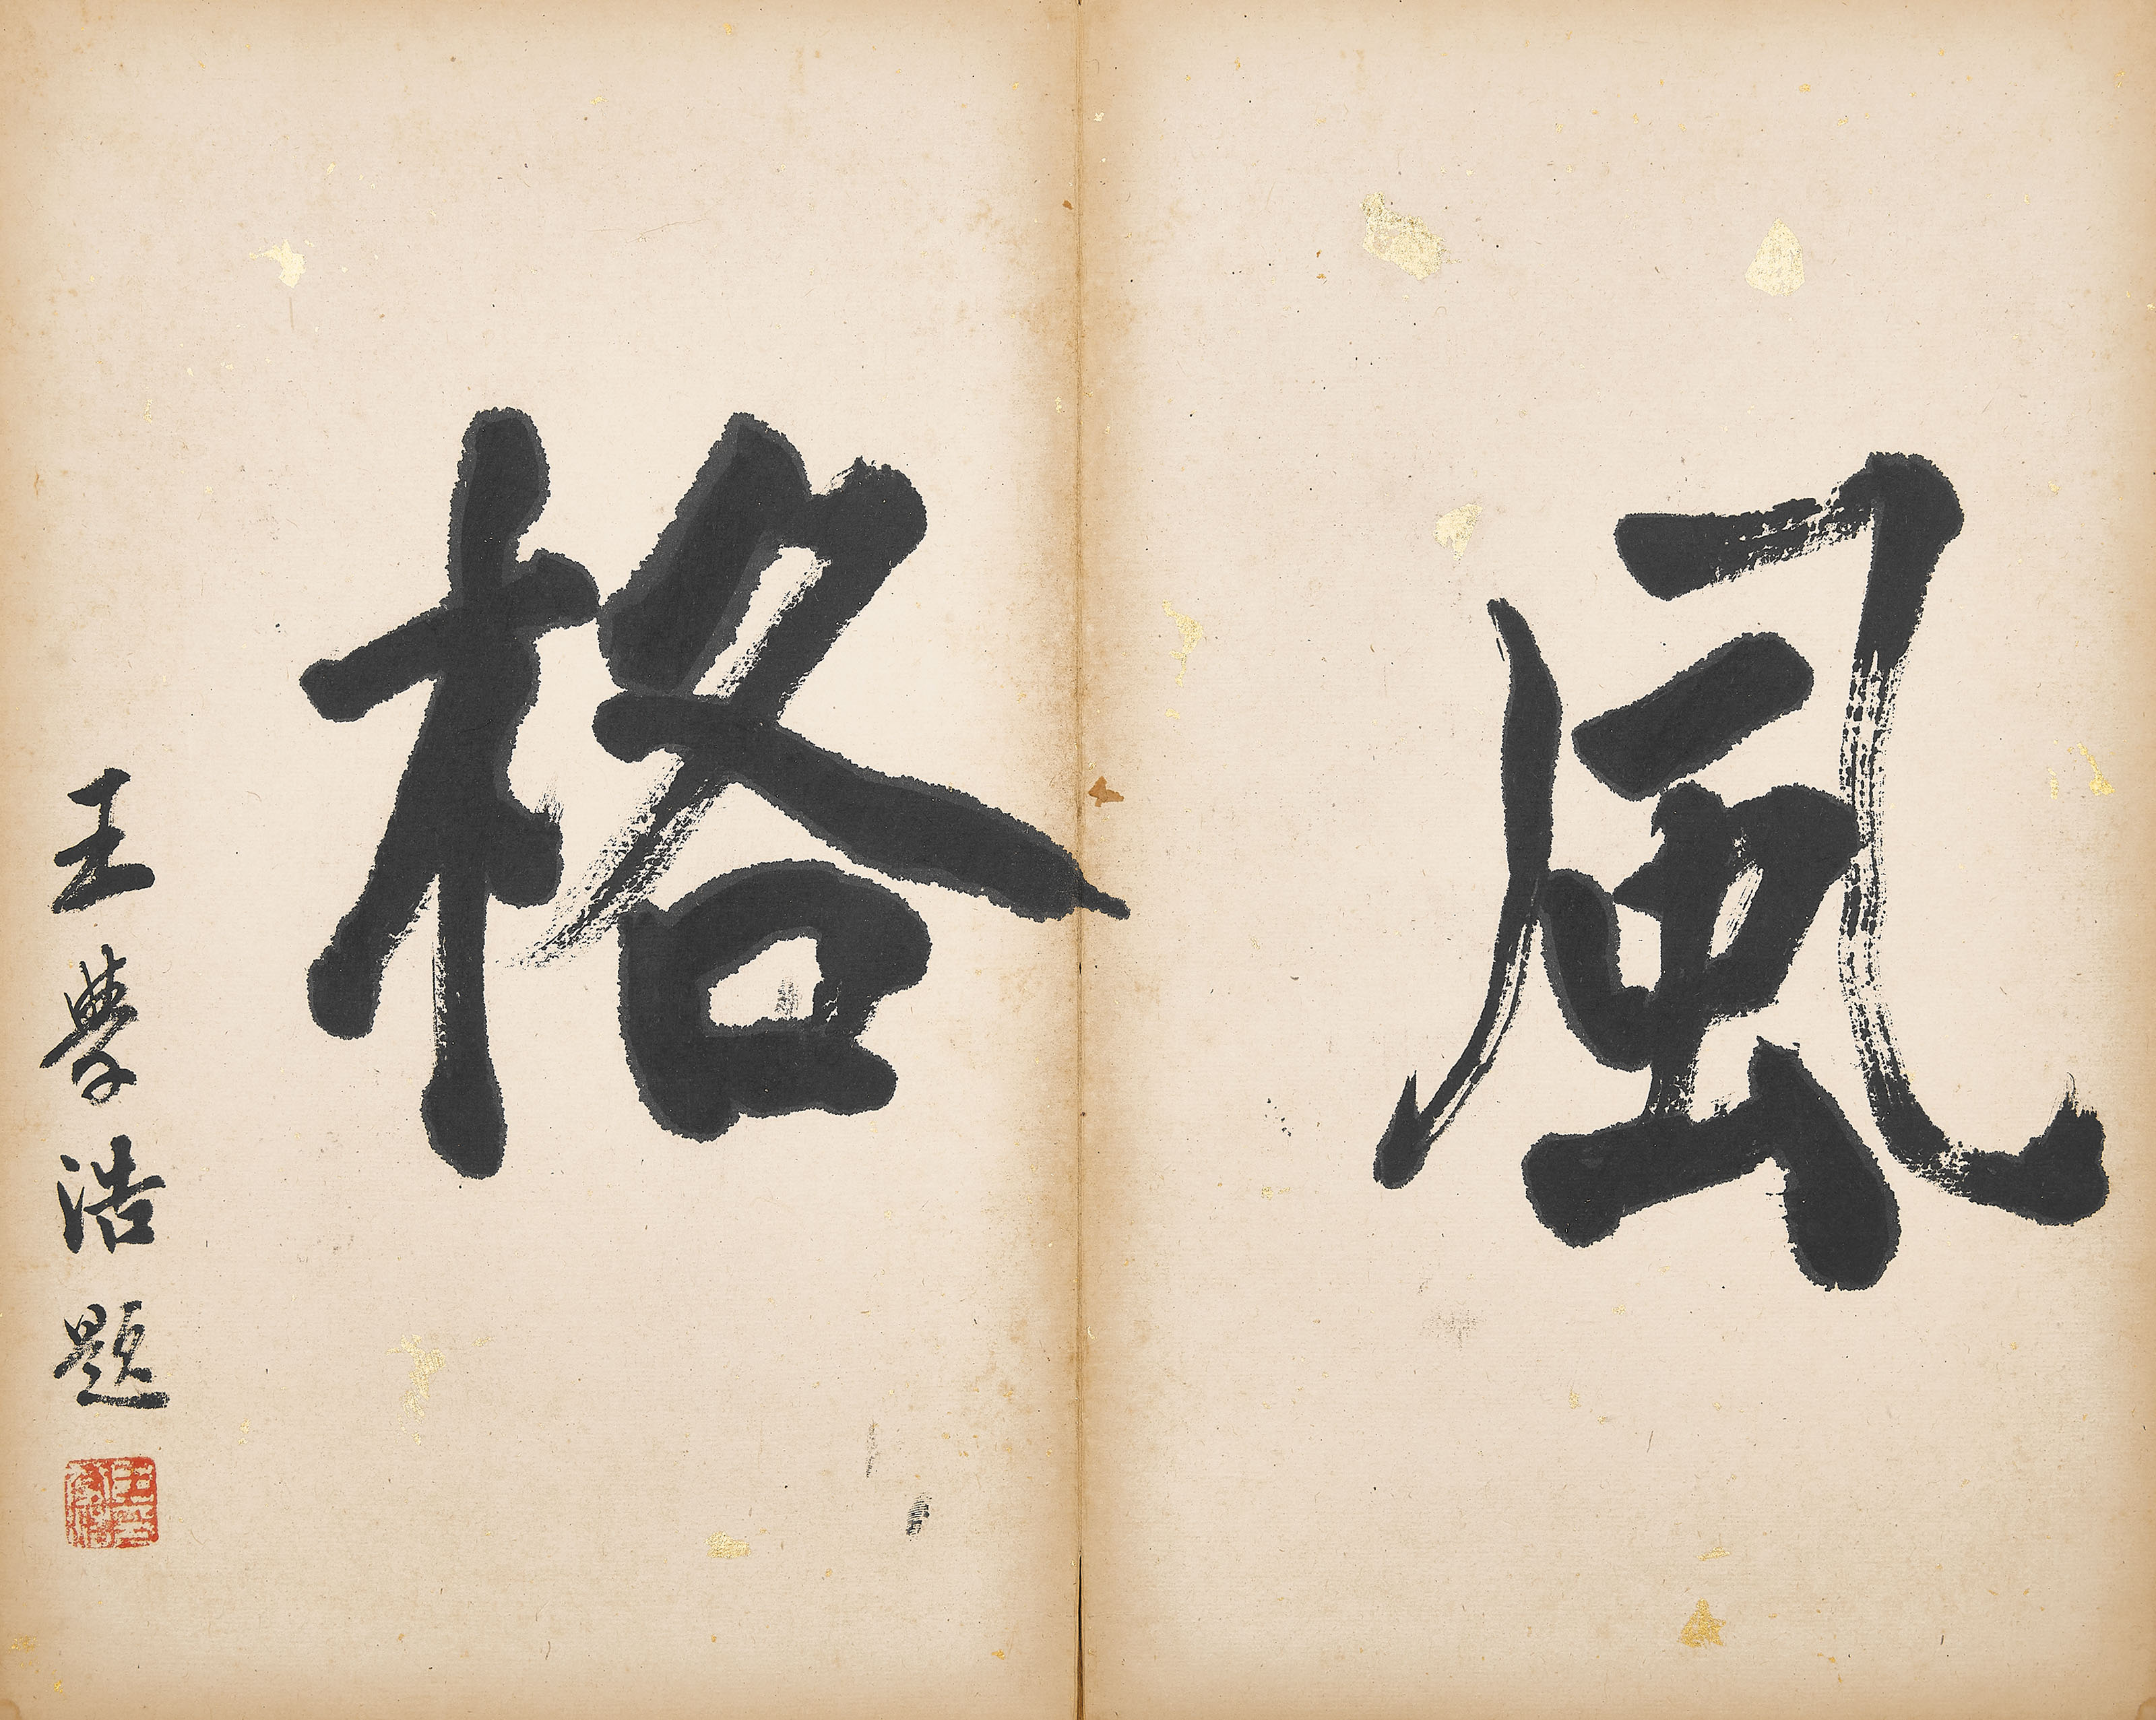 風格
王學浩題